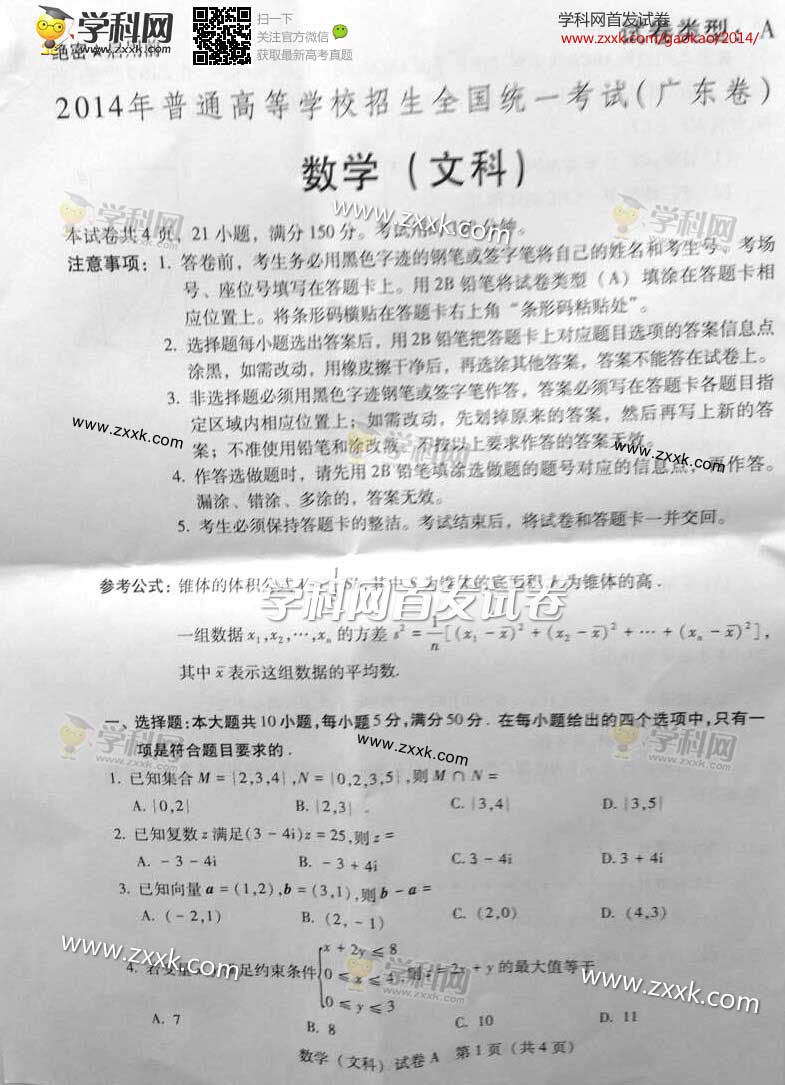 学科网 WWW.ZXXK.COM
扫一下
关注官方微信
获取最新高考真题
学科网首发试卷
www.zxxk.com/gaokao/2014/
类型：A
2014年普通高等学校招生全国统一考试(广东卷)
数学(文科)
学科网
学科网
www.zxxk.com
本试卷共4页，21小题，满分150分。考试
注意事项：1. 答卷前，考生务必用黑色字迹的钢笔或签字笔将自己的姓名和考生号、考场
号、座位号填写在答题卡上。用2B铅笔将试卷类型(A)填涂在答题卡相
应位置上。将条形码横贴在答题卡右上角“条形码粘贴处”。
2. 选择题每小题选出答案后，用2B铅笔把答题卡上对应题目选项的答案信息点
涂黑，如需改动，用橡皮擦干净后，再选涂其他答案，答案不能答在试卷上。
3. 非选择题必须用黑色字迹钢笔或签字笔作答，答案必须写在答题卡各题目指
定区域内相应位置上；如需改动，先划掉原来的答案，然后再写上新的答
案；不准使用铅笔和涂改液。不按以上要求作答的答案无效。
www.zxxk.com
学科网
www.zxxk.com
4. 作答选做题时，请先用2B铅笔填涂选做题的题号对应的信息点，再作答。
漏涂、错涂、多涂的，答案无效。
5. 考生必须保持答题卡的整洁。考试结束后，将试卷和答题卡一并交回。
参考公式：锥体的体积公式 其中S为锥体的底面积，h为锥体的高.
学科网首发试卷
一组数据x₁,x₂,⋯,xₙ的方差s²=1/n[(x₁-x̄)²+(x₂-x̄)²+⋯+(xₙ-x̄)²],
其中x̄表示这组数据的平均数.
一、选择题：本大题共10小题,每小题5分,满分50分. 在每小题给出的四个选项中,只有一
项是符合题目要求的.
学科网
www.zxxk.com
学科网
www.zxxk.com
1. 已知集合M={2,3,4},N={0,2,3,5},则M∩N=
A.{0,2} B.{2,3} C.{3,4} D.{3,5}
2. 已知复数z满足(3-4i)z=25,则z=
A. -3-4i B. -3+4i C. 3-4i D. 3+4i
3. 已知向量a=(1,2),b=(3,1),则b-a=
A. (-2,1) B. (2,-1) C. (2,0) D. (4,3)
www.zxxk.com
学科网
www.zxxk.com
x+2y≤8
4. 若变量 足约束条件 0≤x≤4 ,则z=2x+y的最大值等于
0≤y≤3
A. 7 B. 8 C. 10 D. 11
数学(文科)试卷A 第1页(共4页)